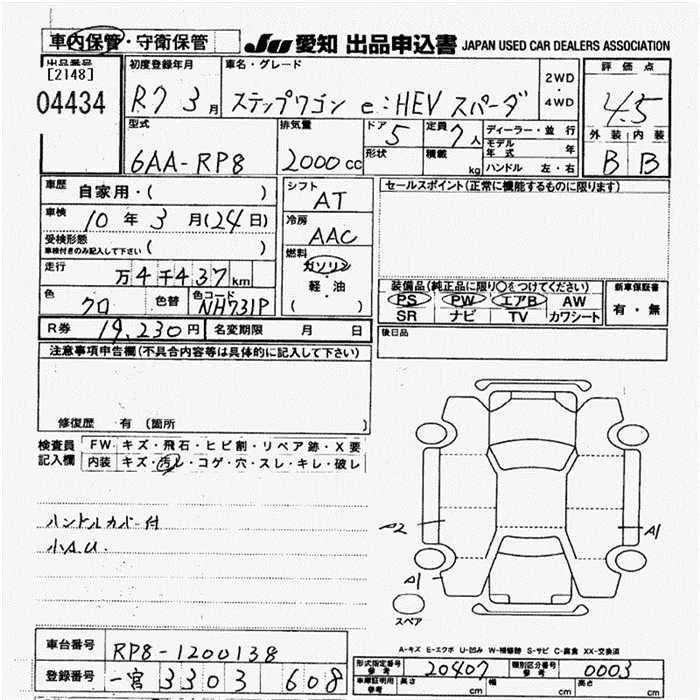 車内保管・守衛保管
JU 愛知 出品申込書 JAPAN USED CAR DEALERS ASSOCIATION
出品番号
[2148]
04434
初度登録年月
R7 3月
車名・グレード
ステップワゴン e:HEV スパーダ
2WD
・
4WD
評価点
4.5
外装 内装
B B
型式
6AA-RP8
排気量
2000cc
ドア 5
形状
定員 7人
積載 kg
ディーラー・並行
モデル年式 年
ハンドル 左・右
車歴 自家用・( )
車検 10年3月(24日)
受検形態
車検付きのみ記入して下さい ( )
走行 万4千437km
色 クロ 色替 色コード NH731P
シフト
AT
冷房
AAC
燃料
ガソリン
軽・油
( )
セールスポイント(正常に機能するものに限ります)
装備品(純正品に限り○をつけてください)
PS PW エアB AW
SR ナビ TV カワシート
新車保証書
有・無
R券 19,230円 名変期限 月 日
後日品
注意事項申告欄(不具合内容等は具体的に記入して下さい)
修復歴 有 〔箇所 〕
検査員記入欄
FW キズ・飛石・ヒビ割・リペア跡・X要
内装 キズ・汚レ・コゲ・穴・スレ・キレ・破レ
ハンドルカバー付
小A.U.
A2
A1
A1
スペア
A-キズ E-エクボ U-凹み W-補修跡 S-サビ C-腐食 XX-交換済
車台番号 RP8-1200138
登録番号 一宮 3303 608
形式指定番号 参考 20407 類別区分番号 参考 0003
車庫証明用 参考 長さ cm 幅 cm 高さ cm